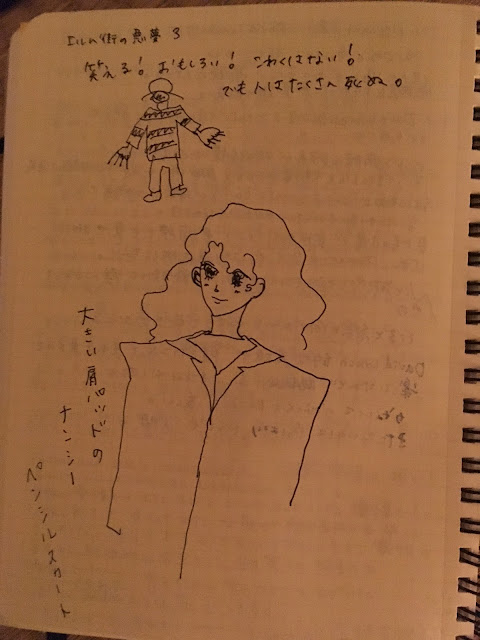 エルム街の悪夢 3
笑える！おもしろい！こわくはない！
でも人はたくさん死ぬ。
大きい肩パッドの
ナンシー
ペンシルスカート